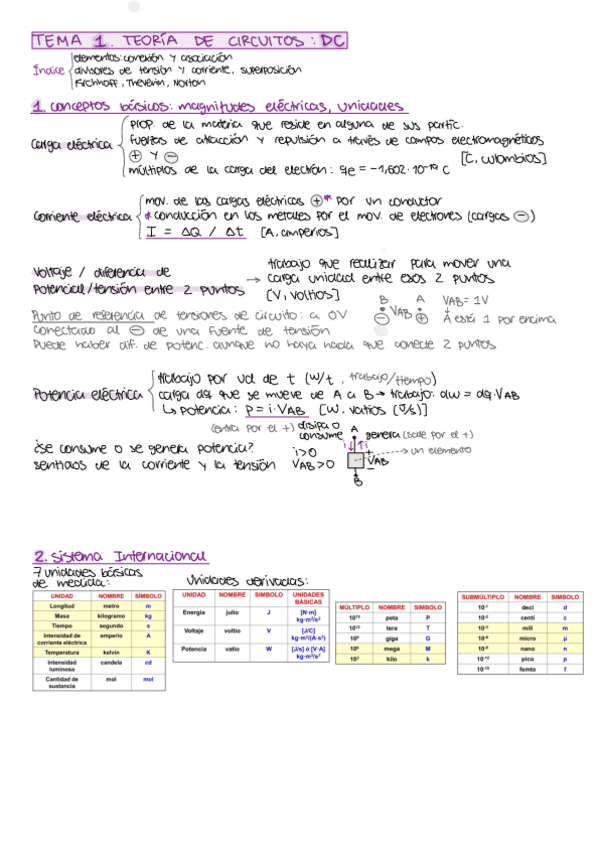 TEMA 1. TEORÍA DE CIRCUITOS: DC
Índice
elementos: conexión y asociación
divisores de tensión y corriente, superposición
Kirchhoff, Thevenin, Norton
1. conceptos básicos: magnitudes eléctricas, unidades
carga eléctrica
prop. de la materia que reside en alguna de sus partíc.
fuerzas de atracción y repulsión a través de campos electromagnéticos
+ y − [C, culombios]
múltiplos de la carga del electrón: qe = −1,602·10⁻¹⁹ C
corriente eléctrica
mov. de las cargas eléctricas +* por un conductor
* conducción en los metales por el mov. de electrones (cargas −)
I = ΔQ / Δt [A, amperios]
voltaje / diferencia de
potencial/tensión entre 2 puntos
→ trabajo que realizar para mover una
carga unidad entre esos 2 puntos
[V, voltios]
B A VAB = 1V
− VAB + A está 1 por encima
Punto de referencia de tensiones de circuito: a 0V
conectado al − de una fuente de tensión
Puede haber dif. de potenc. aunque no haya nada que conecte 2 puntos
Potencia eléctrica
trabajo por ud de t (W/t, trabajo/tiempo)
carga dq que se mueve de A a B → trabajo: dw = dq·VAB
↳ potencia: P = i·VAB [W, vatios (J/s)]
(entra por el +) disipa o consume
A
genera (sale por el +)
¿se consume o se genera potencia?
sentidos de la corriente y la tensión
i>0
VAB>0
+
VAB
−
B
→ un elemento
2. Sistema Internacional
7 unidades básicas
de medida:
UNIDAD NOMBRE SÍMBOLO
Longitud metro m
Masa kilogramo kg
Tiempo segundo s
Intensidad de corriente eléctrica amperio A
Temperatura kelvin K
Intensidad luminosa candela cd
Cantidad de sustancia mol mol
Unidades derivadas:
UNIDAD NOMBRE SIMBOLO UNIDADES BÁSICAS
Energía julio J [N·m] kg·m²/s²
Voltaje voltio V [J/C] kg·m²/(A·s³)
Potencia vatio W [J/s] ó [V·A] kg·m²/s³
MÚLTIPLO NOMBRE SIMBOLO
10¹⁵ peta P
10¹² tera T
10⁹ giga G
10⁶ mega M
10³ kilo k
SUBMÚLTIPLO NOMBRE SIMBOLO
10⁻¹ deci d
10⁻² centi c
10⁻³ mili m
10⁻⁶ micro μ
10⁻⁹ nano n
10⁻¹² pico p
10⁻¹⁵ femto f